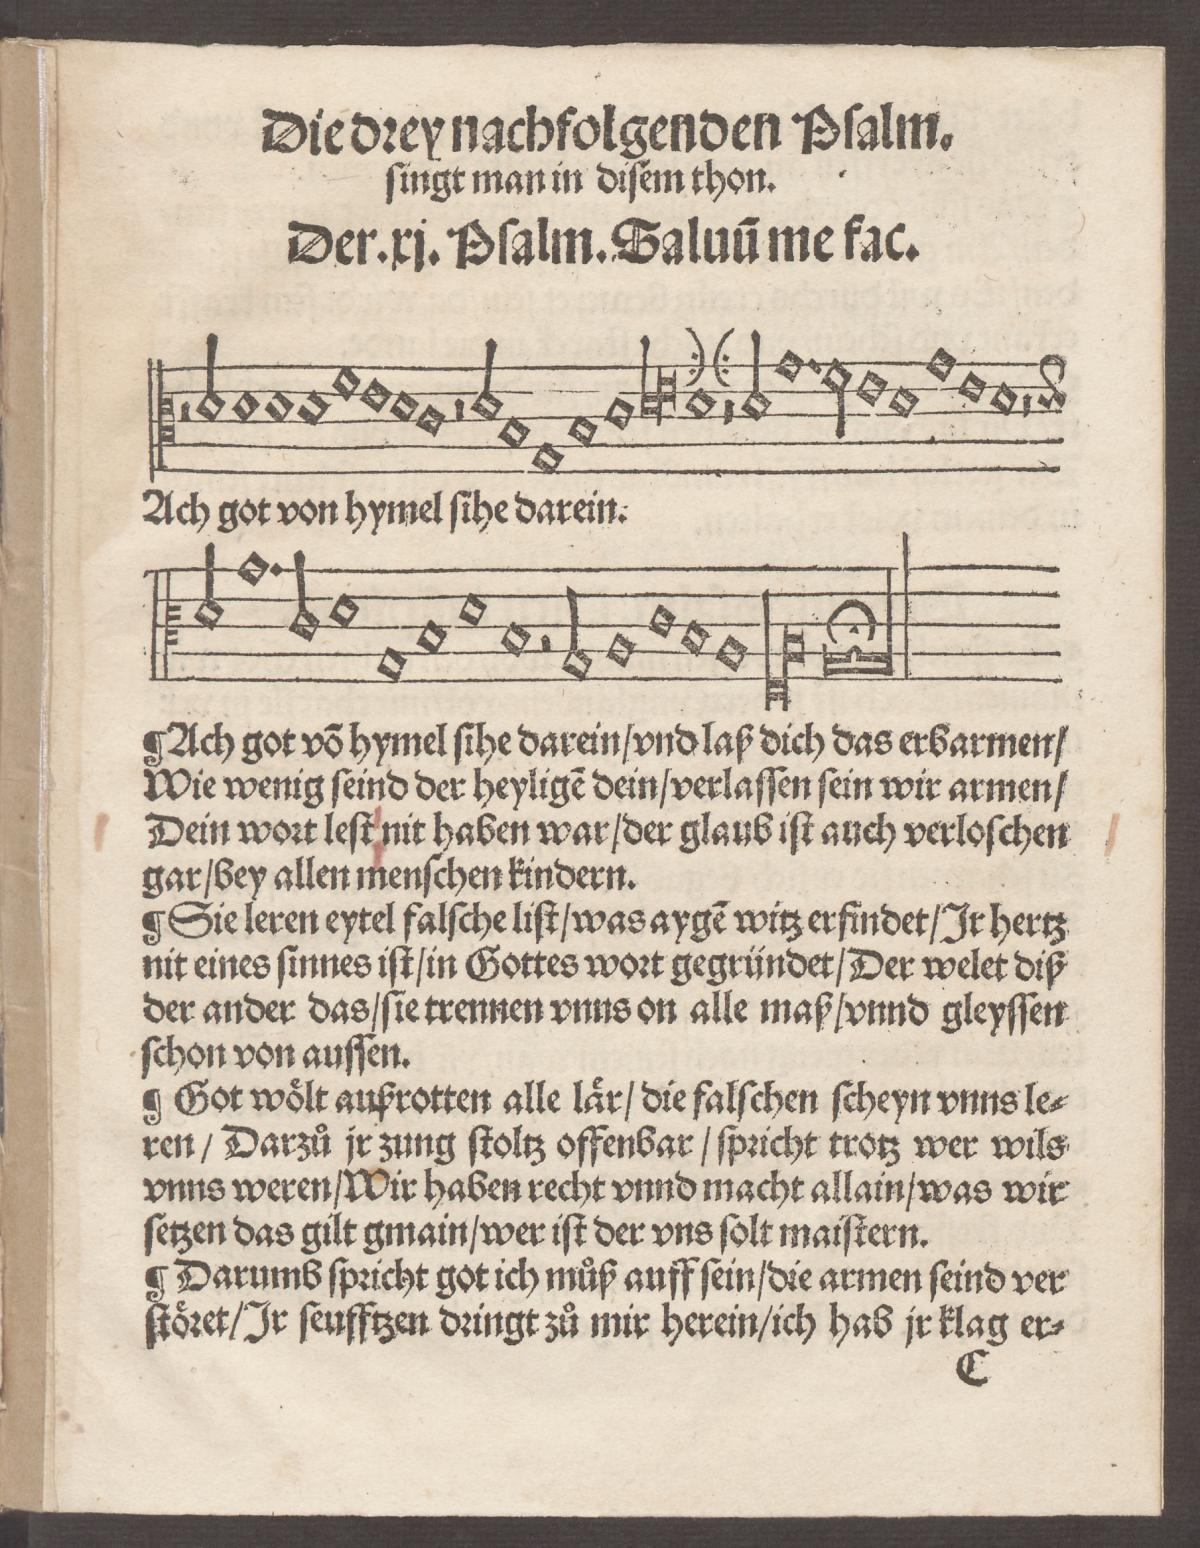 Die drey nachfolgenden Psalm.
singt man in disem thon.
Der .xj. Psalm. Saluū me fac.
Ach got von hymel sihe darein.
¶ Ach got võ hymel sihe darein/vnd laß dich das erbarmen/
Wie wenig seind der heyligē dein/verlassen sein wir armen/
Dein wort lest nit haben war/der glaub ist auch verloschen
gar/bey allen menschen kindern.
¶ Sie leren eytel falsche list/was aygē witz erfindet/Jr hertz
nit eines sinnes ist/in Gottes wort gegründet/Der welet diß
der ander das/sie trennen vnns on alle maß/vnnd gleyssen
schon von aussen.
¶ Got woͤlt außrotten alle laͤr/die falschen scheyn vnns le⸗
ren/Darzuͦ jr zung stoltz offenbar/spricht trotz wer wils
vnns weren/Wir haben recht vnnd macht allain/was wir
setzen das gilt gmain/wer ist der vns solt maistern.
¶ Darumb spricht got ich muͦß auff sein/die armen seind ver
stoͤret/Jr seufftzen dringt zuͦ mir herein/ich hab jr klag er⸗
C